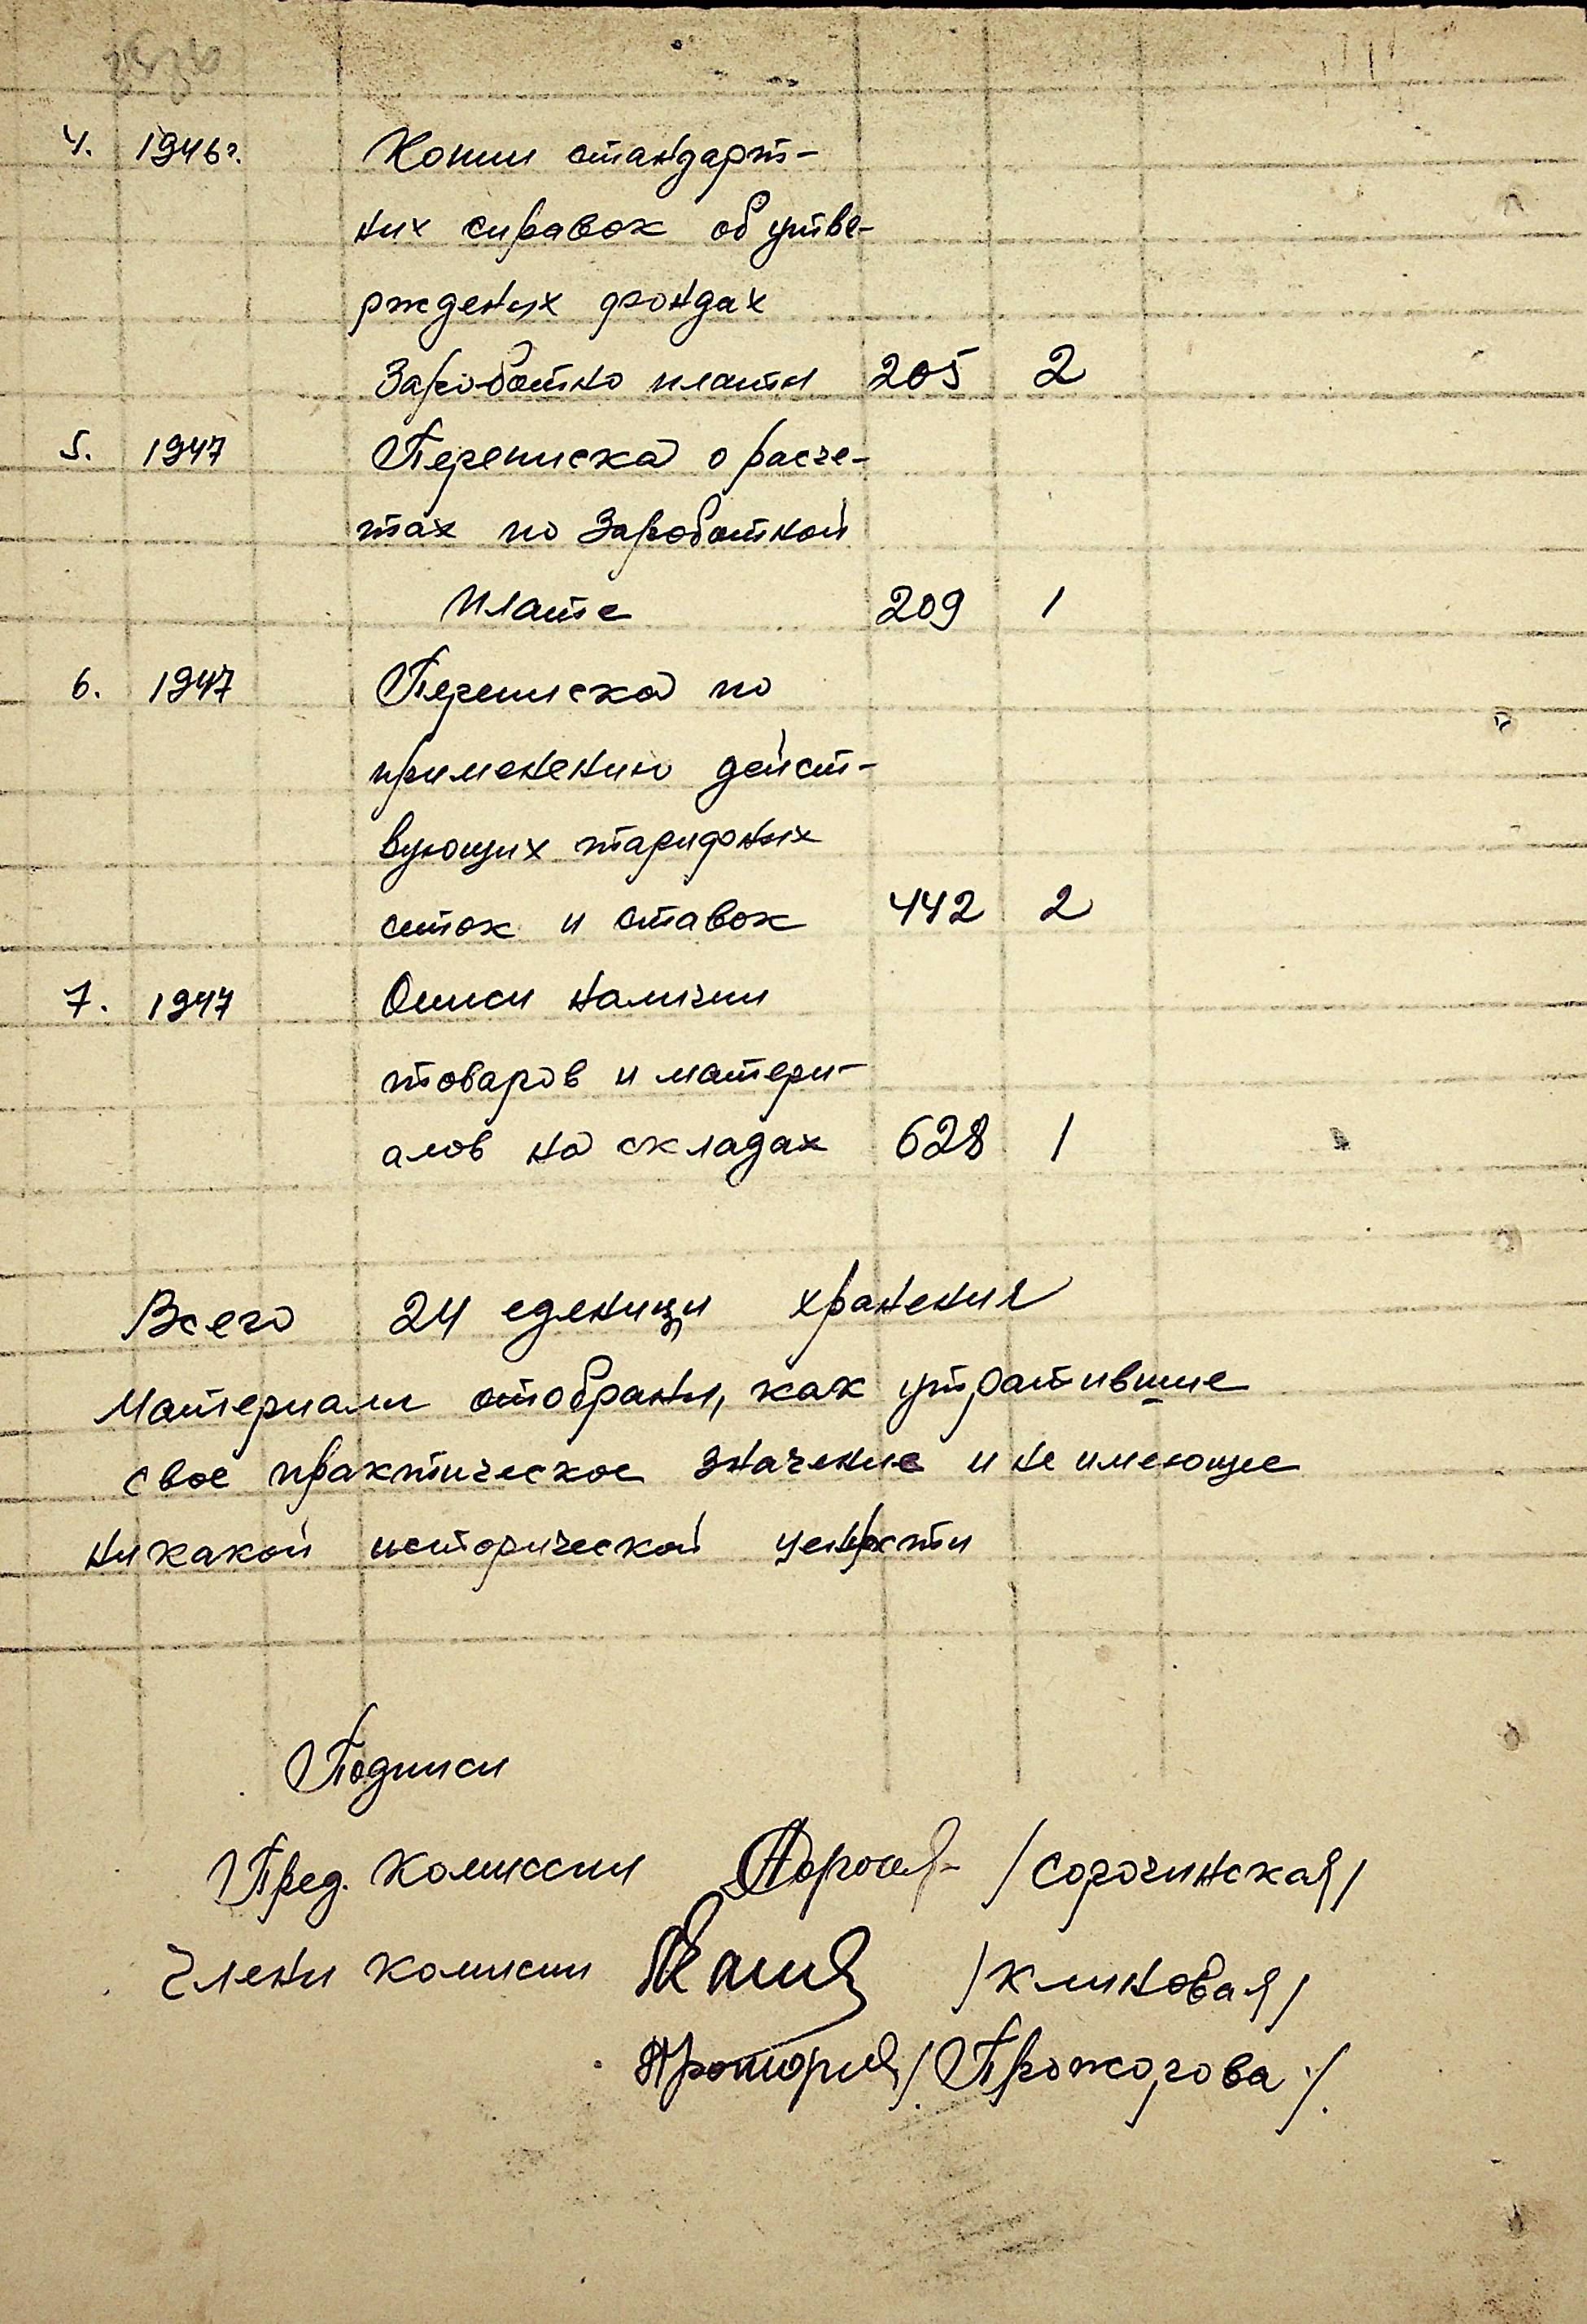 4. 1946г. Копии стандарт-
них справок об утве-
ржденых фондах
Заработно платы 205 2
5. 1947 Переписка о расче-
тах по Заработной
плате 209 1
6. 1947 Переписка по
применению дейст-
вующих тарифных
сеток и ставок 442 2
7. 1947 Описи наличии
товаров и матери-
алов на складах 628 1
Всего 24 еденицы хранения
Материалы отобраны, как утратившие
свое практическое значение и не имеющие
никакой исторической ценности
Подписи
Пред. Комиссии /Сорочинская/
Члены комисии /Климовая/
/Прожорова/.